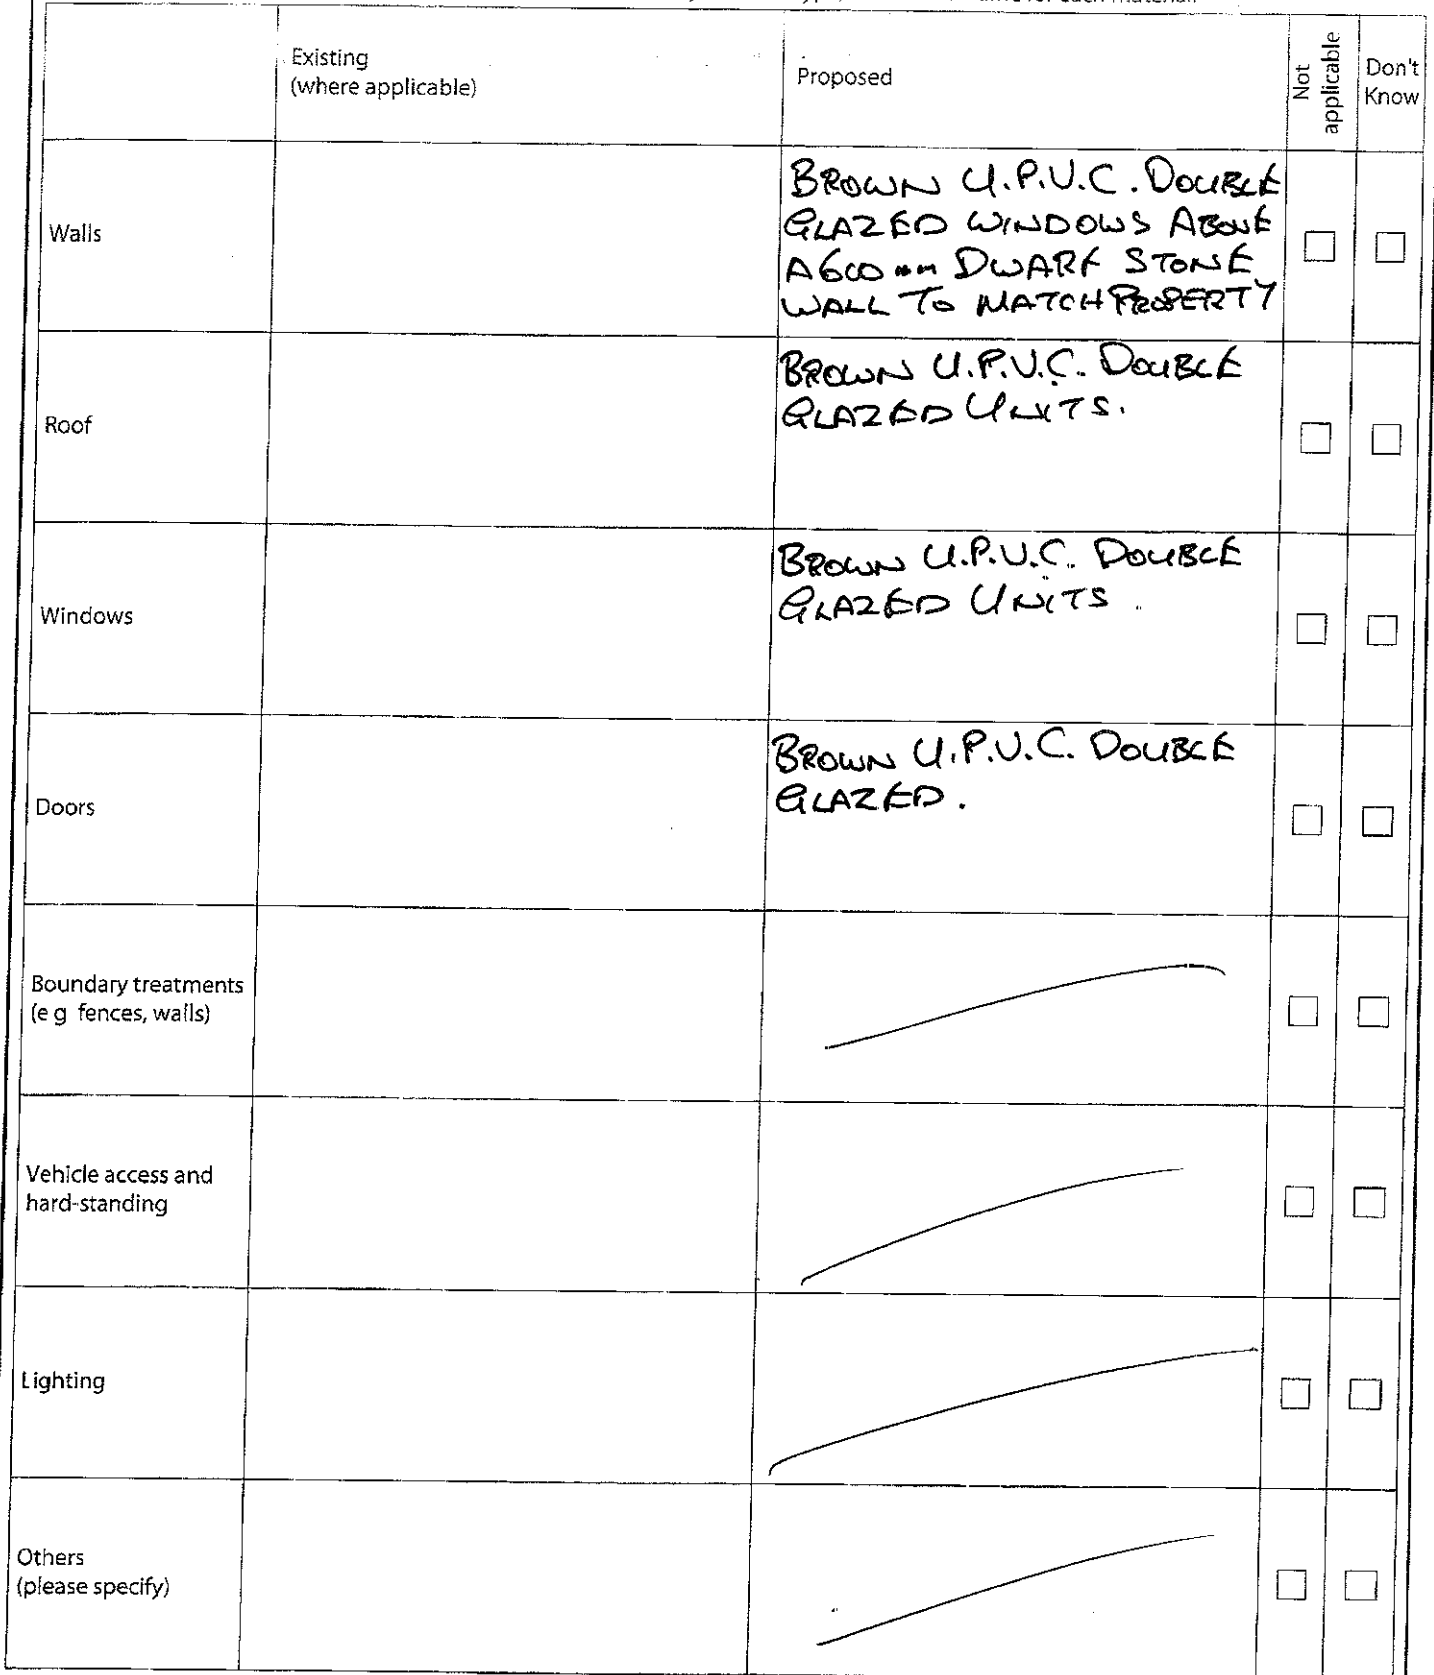 Existing
(where applicable)
Proposed
Not
applicable
Don't
Know
Walls
BROWN U.P.V.C. DOUBLE
GLAZED WINDOWS ABOVE
A 600 mm DWARF STONE
WALL TO MATCH PROPERTY
Roof
BROWN U.P.V.C. DOUBLE
GLAZED UNITS.
Windows
BROWN U.P.V.C. DOUBLE
GLAZED UNITS.
Doors
BROWN U.P.V.C. DOUBLE
GLAZED.
Boundary treatments
(e g fences, walls)
Vehicle access and
hard-standing
Lighting
Others
(please specify)